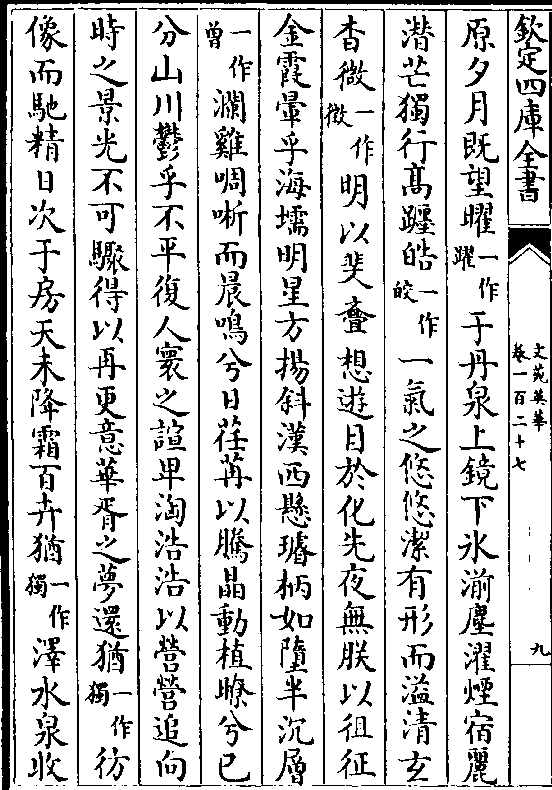 欽定四庫全書
文苑英華
卷一百二十七
九
原夕月既望曜一作躍于丹泉上鏡下氷湔塵濯煙宿麗
潛芒獨行髙躔皓一作皎一氣之悠悠潔有形而溢清玄
杳微一作徴明以斐亹想遊目於化先夜無朕以徂征
金霞暈乎海壖明星方揚斜漢西懸璿柄如墮半沉層
一作曽瀾雞啁哳而晨鳴兮日荏苒以騰晶動植暸兮已
分山川鬱乎不平復人寰之諠卑淘浩浩以營營追向
時之景光不可驟得以再更意華胥之夢還猶一作獨彷
像而馳精日次于房天未降霜百卉猶一作獨澤水泉收